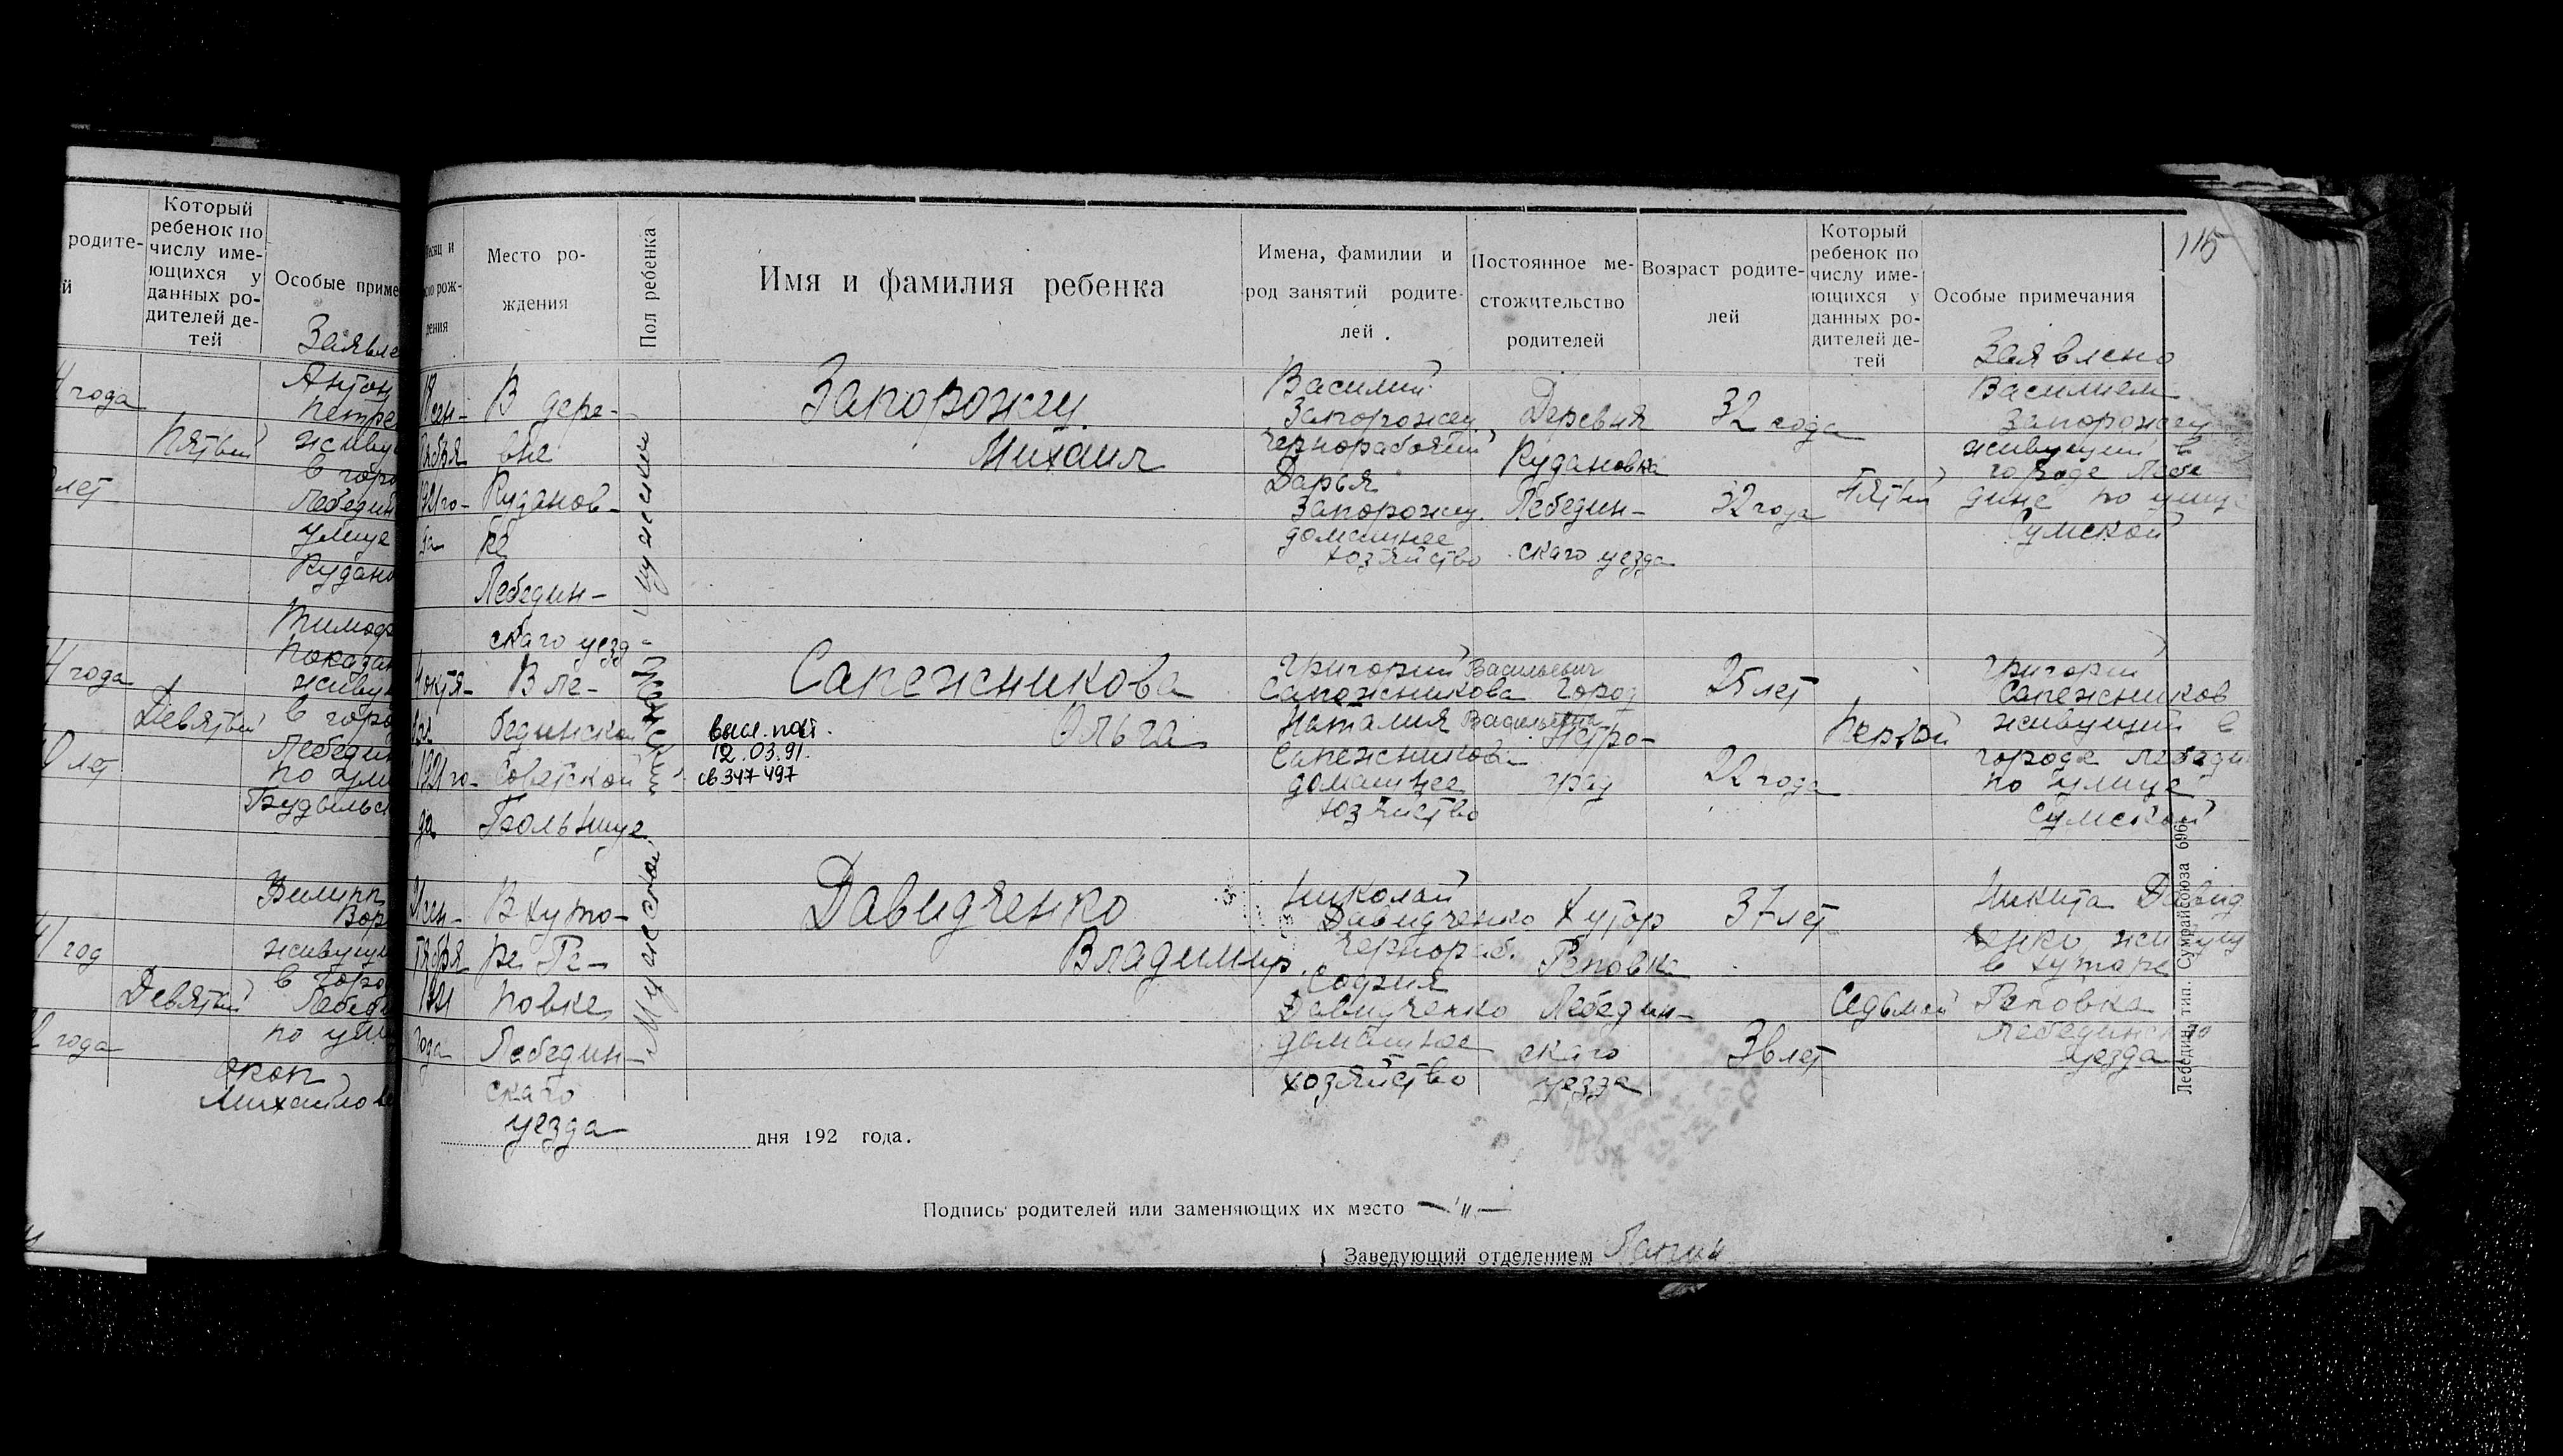 родите-
й
Который
ребенок по
числу име-
ющихся у
данных ро-
дителей де-
тей
Особые приме
Заявле
года
Пятый
лет
Антон
Петре
живу
в горо
Лебедин
улице
Кудано
года
Девятый
лет
Тимоф
показан
живу
в горо
Лебедин
по ули
Будыльс
год
Девятый
года
Филипп
Вор
живущи
в горо
Лебеди
по ули
Михайлов
115
есяц и
рож-
дения
Место ро-
ждения
Пол ребенка
Имя и фамилия ребенка
Имена, фамилии и
род занятий родите-
лей.
Постоянное ме-
стожительство
родителей
Возраст родите-
лей
Который
ребенок по
числу име-
ющихся у
данных ро-
дителей де-
тей
Особые примечания
Заявлено
18
сен-
тября
1921 го-
да
В дере-
вне
Куданов-
ке
Лебедин-
скаго уезд
Мужской
Запорожец
Михаил
Василий
Запорожец
чернорабочий
Дарья
Запорожец
домашнее
хозяйство
Деревня
Кудановка
Лебедин-
скаго уезда
32 года
32 года
Пятый
Василием
Запорожец
живущий в
городе Лебе
дине по улице
Сумской
4 октя-
бря
1921 го-
да
В Ле-
бединской
Советской
Больнице
Женский
Сапежникова
Ольга
высл. повт.
12.03.91.
св 347497
Григорий Васильевич
Сапежникова
Наталия Васильевна
Сапежникова
домашнее
хозяйство
Город
Петро-
град
25 лет
22 года
Первый
Григорий
Сапежников
живущий в
городе Лебеди
по улице
Сумской
21 сен-
тября
1921
года
В хуто-
ре Ре-
повке
Лебедин-
скаго
уезда
Мужской
Давидченко
Владимир
Николай
Давидченко
чернораб.
София
Давидченко
домашнее
хозяйство
Хутор
Реповка
Лебедин-
скаго
уезда
37 лет
38 лет
Седьмой
Никита Давид
ченко, живущ
в хуторе
Реповка
Лебединского
уезда
Лебедин, тип. Сумрайсоюза 696
дня 192 года.
Подпись родителей или заменяющих их место — " —
Заведующий отделением